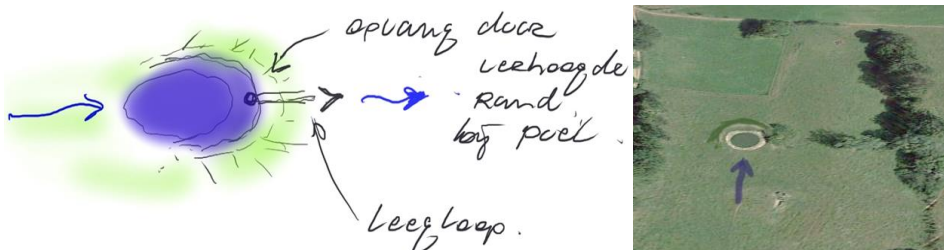 opvang door
verhoogde
rand
bij poel.
leegloop.